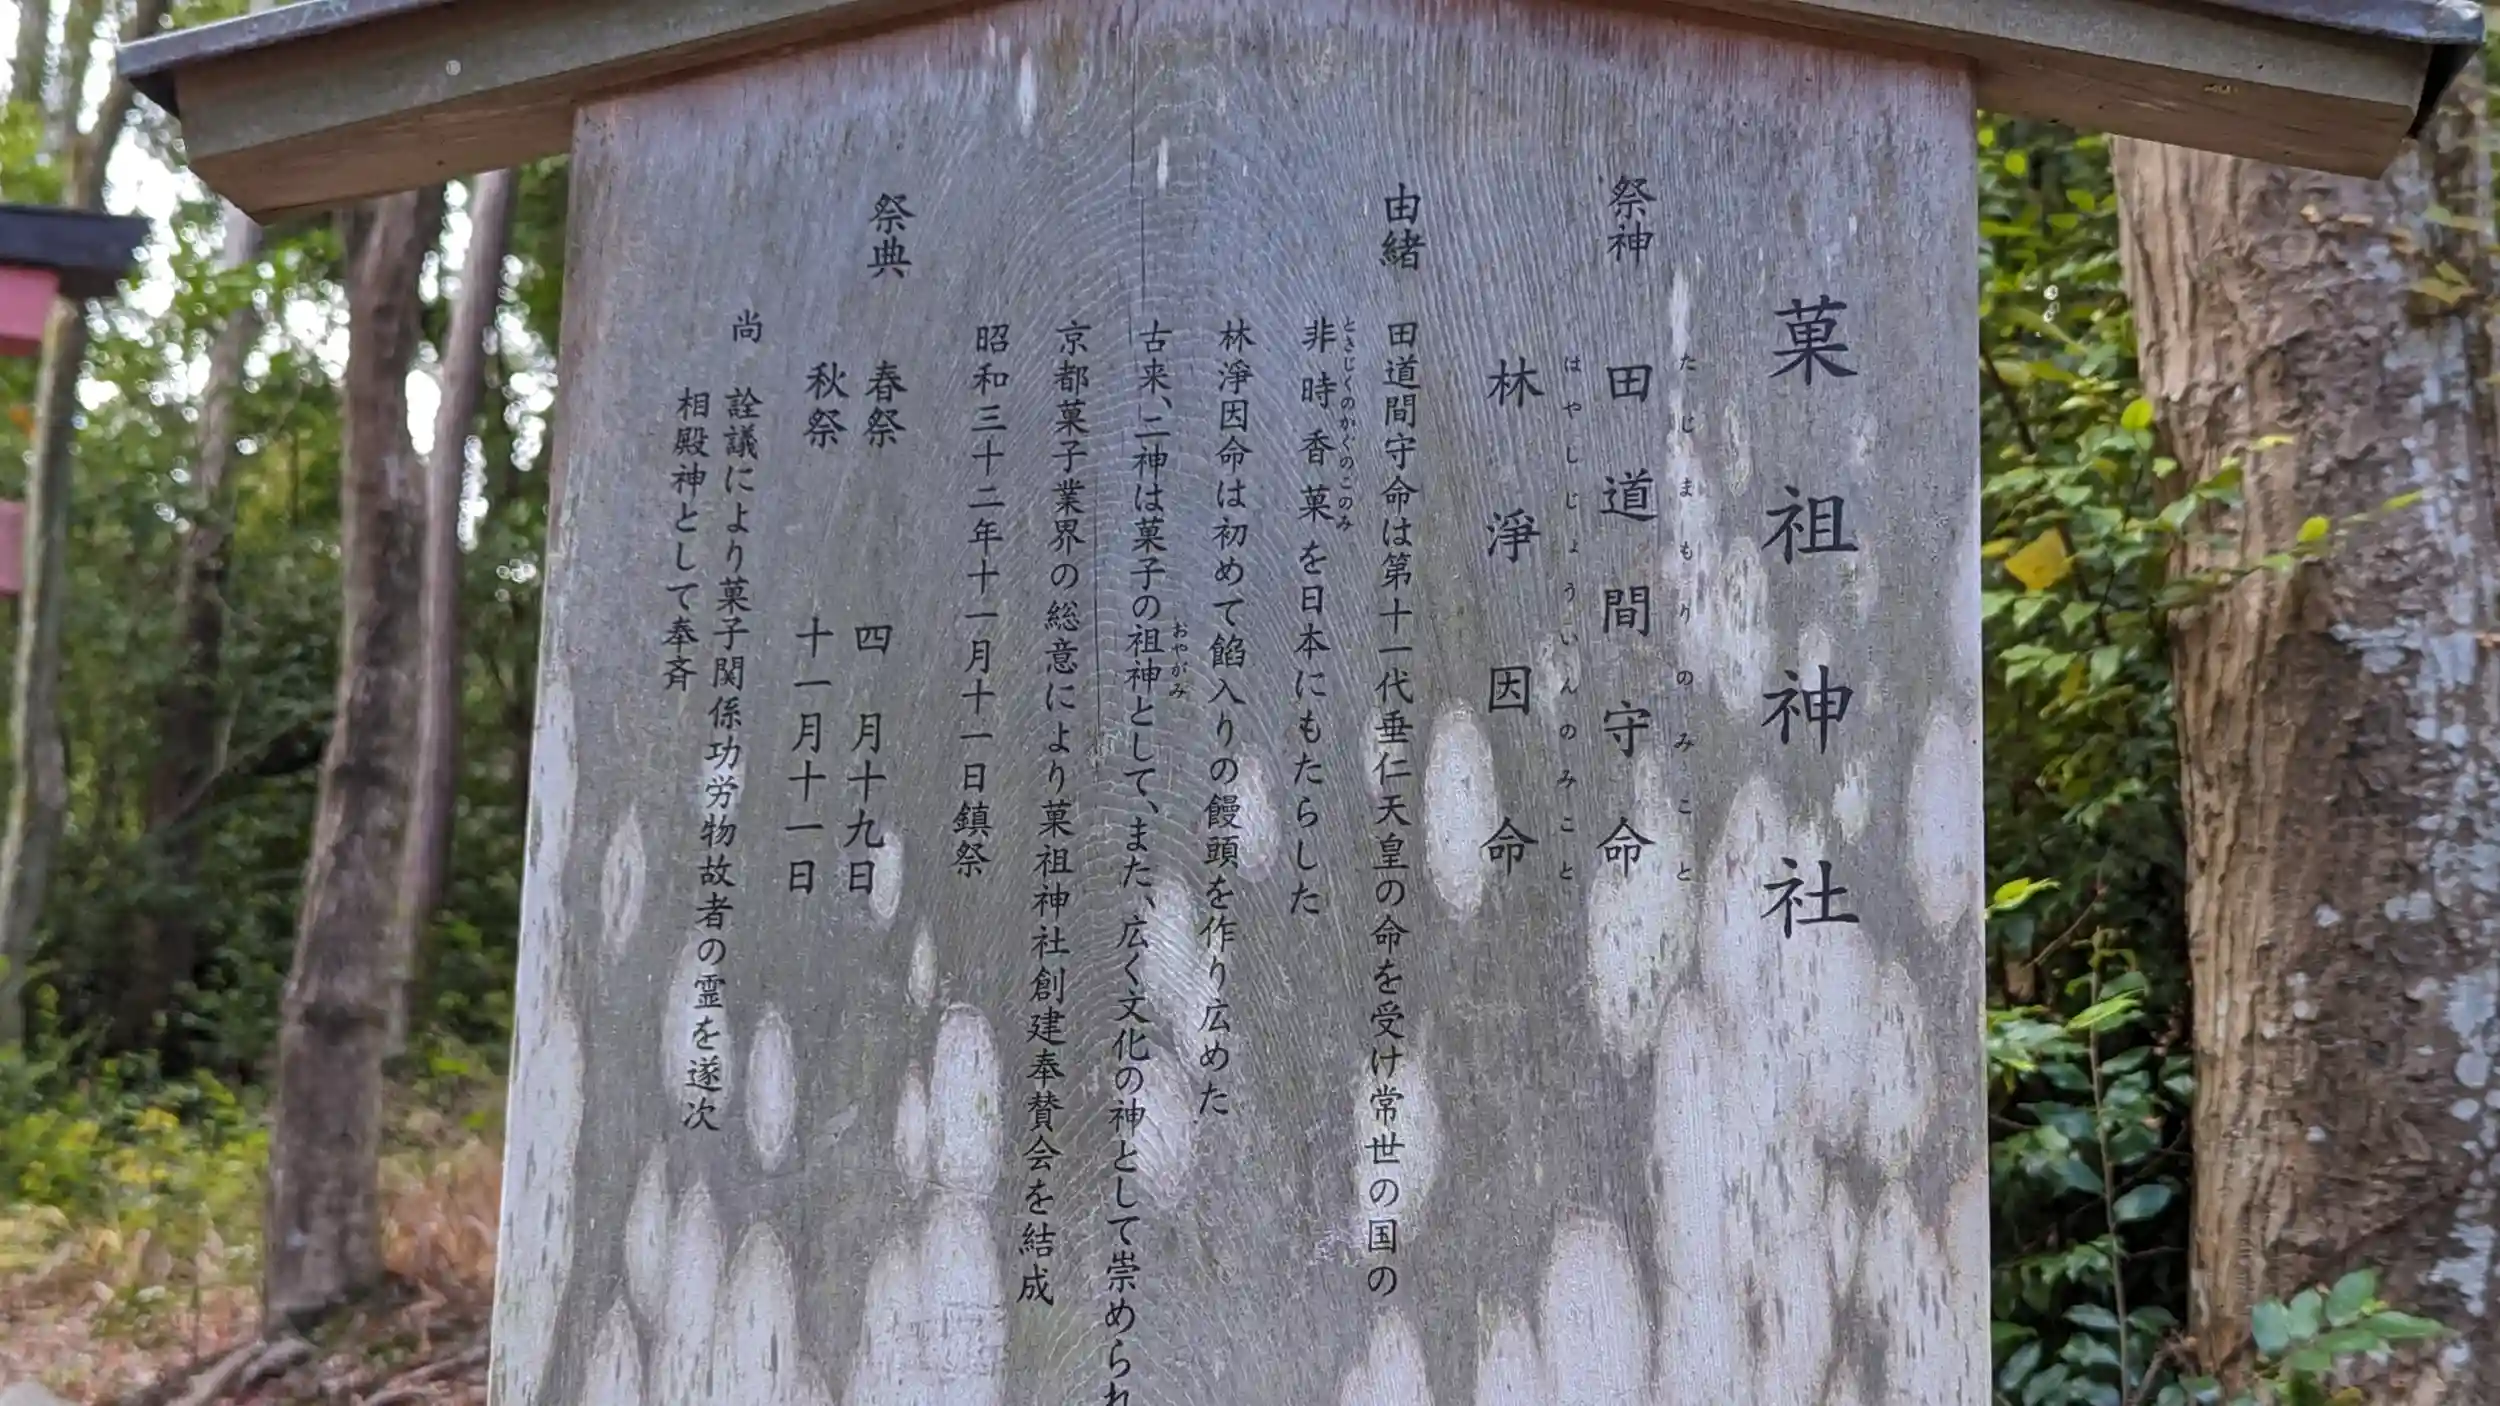 菓祖神社
たじまもりのみこと
祭神 田道間守命
はやしじょういんのみこと
林淨因命
由緒 田道間守命は第十一代垂仁天皇の命を受け常世の国の
ときじくのかぐのこのみ
非時香菓を日本にもたらした
林淨因命は初めて餡入りの饅頭を作り広めた
おやがみ
古来、二神は菓子の祖神として、また、広く文化の神として崇められ
京都菓子業界の総意により菓祖神社創建奉賛会を結成
昭和三十二年十一月十一日鎮祭
祭典 春祭 四月十九日
秋祭 十一月十一日
尚 詮議により菓子関係功労物故者の霊を遂次
相殿神として奉斉